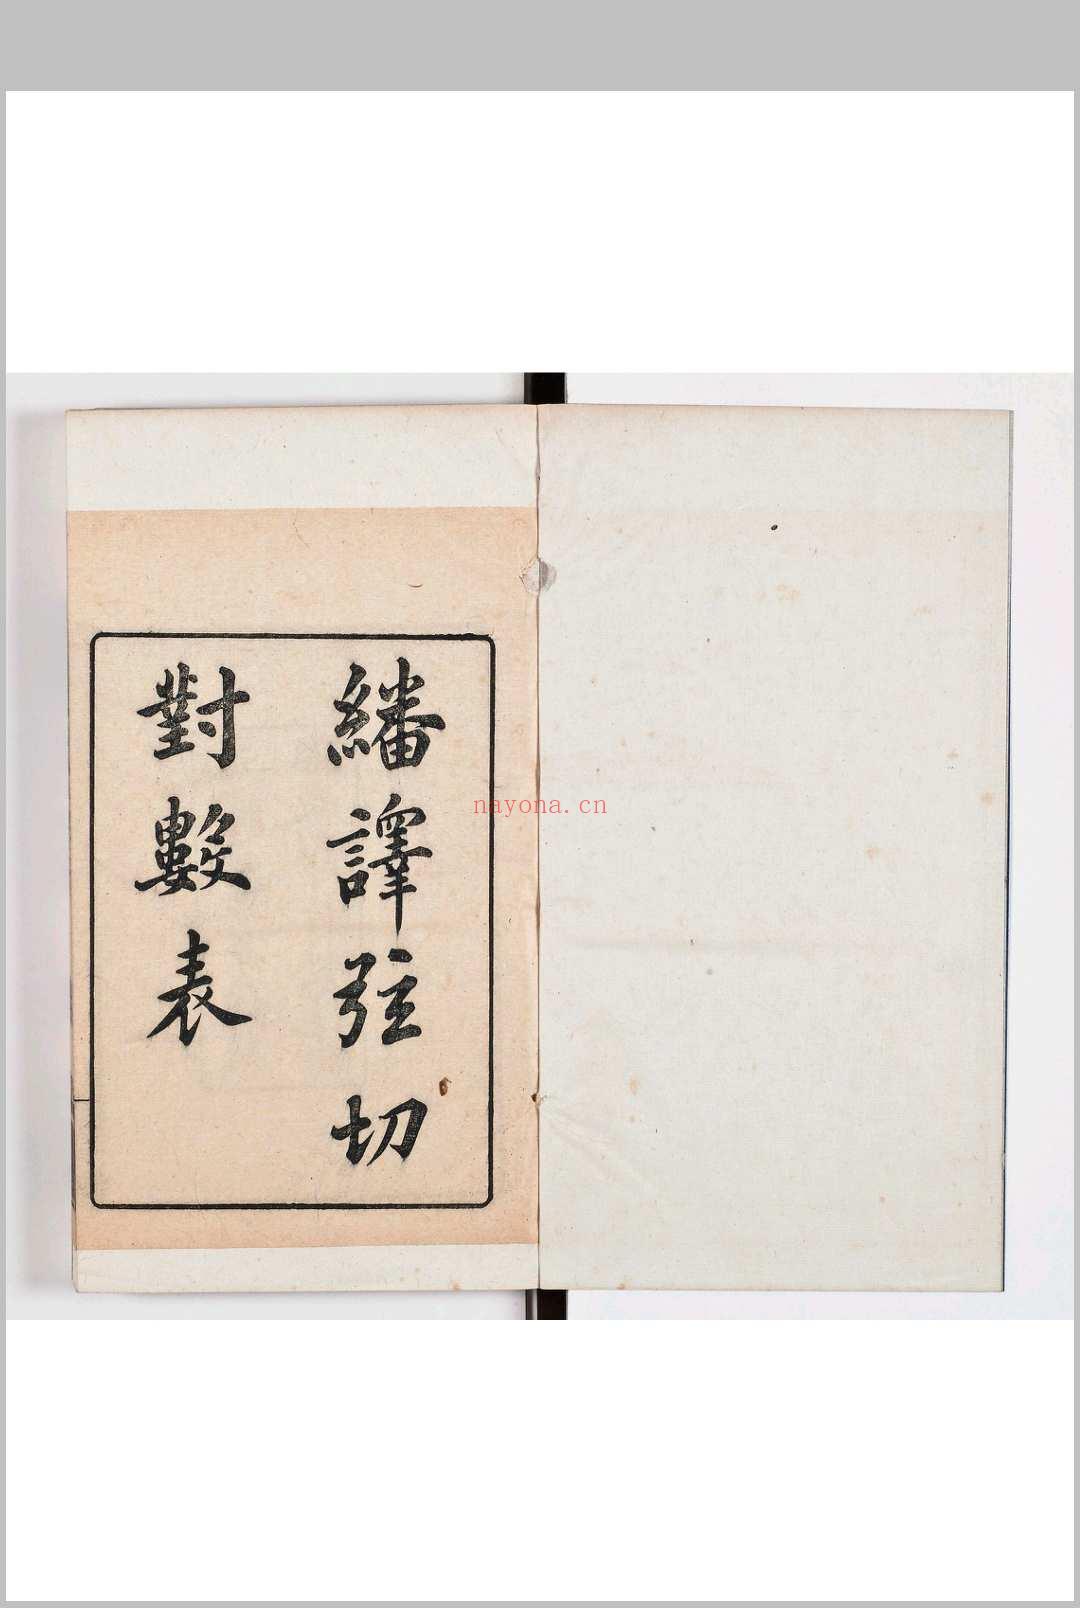 繙譯弦切
對數表
nayona.cn